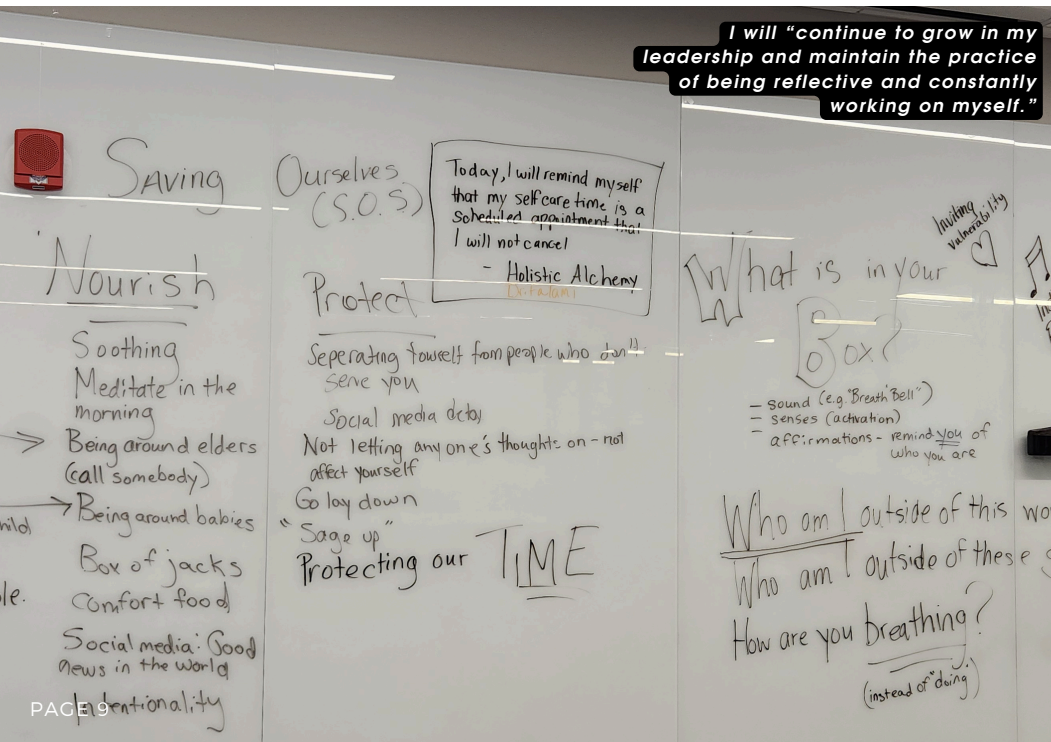 I will “continue to grow in my
leadership and maintain the practice
of being reflective and constantly
working on myself.”
Saving Ourselves
(S.O.S)
Today, I will remind myself
that my selfcare time is a
scheduled appointment that
I will not cancel
- Holistic Alchemy
'Nourish
Soothing
Meditate in the
morning
Being around elders
(call somebody)
Being around babies
Box of jacks
Comfort food
Social media: Good
news in the world
Intentionality
Protect
Seperating yourself from people who don't
serve you
Social media detox
Not letting anyone's thoughts on - not
affect yourself
Go lay down
"Sage up"
Protecting our TIME
Inviting
vulnerability
What is in your
Box?
- sound (e.g. "Breath Bell")
- senses (activation)
- affirmations - remind you of
who you are
Who am I outside of this
Who am I outside of these
How are you breathing?
(instead of "doing")
PAGE 9